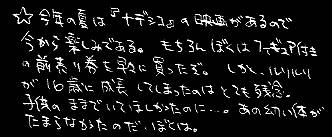 ☆今年の夏は『ナデシコ』の映画があるので
今から楽しみである。もちろんぼくはフィギュア付き
の前売り券を既に買ったぞ。しかし、ルリルリ
が16歳に成長してしまったのはとても残念。
子供のままでいてほしかったのに…。あの幼い体が
たまらなかったのだ、ぼくは。